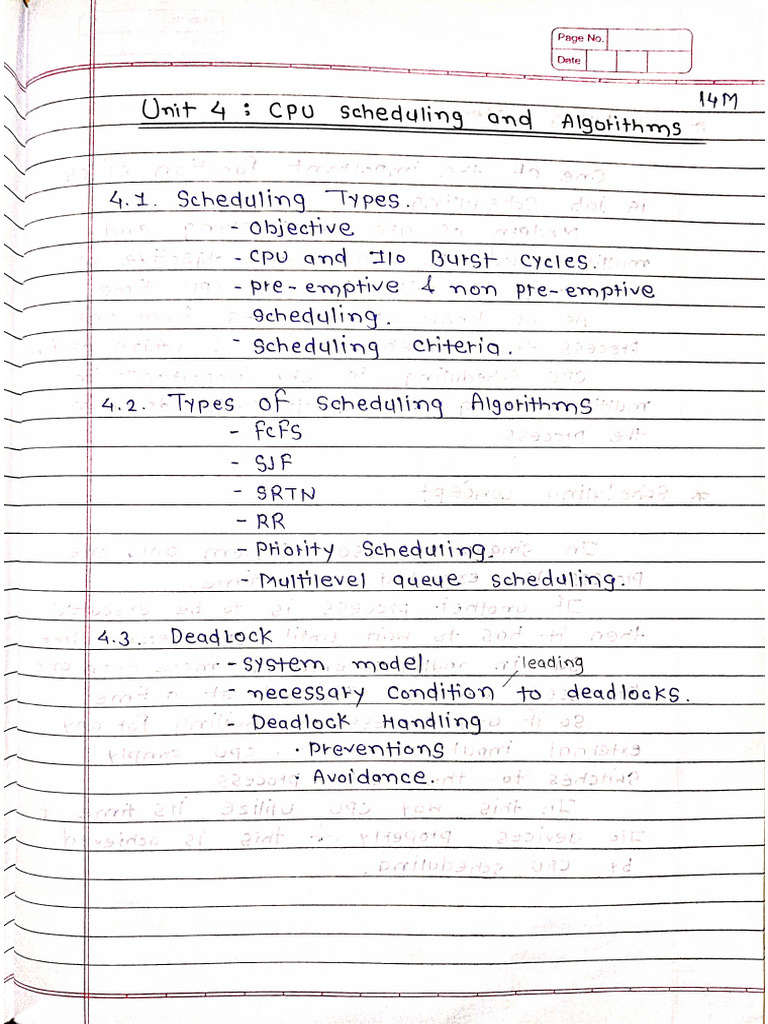 Page No.
Date
14M
Unit 4 : CPU scheduling and Algorithms
4.1. Scheduling Types.
- Objective
- CPU and I/O Burst cycles.
- pre-emptive & non pre-emptive
scheduling.
- scheduling criteria.
4.2. Types of scheduling Algorithms
- FCFS
- SJF
- SRTN
- RR
- Priority Scheduling.
- Multilevel queue scheduling.
4.3. Deadlock
- system model
- necessary condition leading to deadlocks.
- Deadlock Handling
· Preventions
· Avoidance.